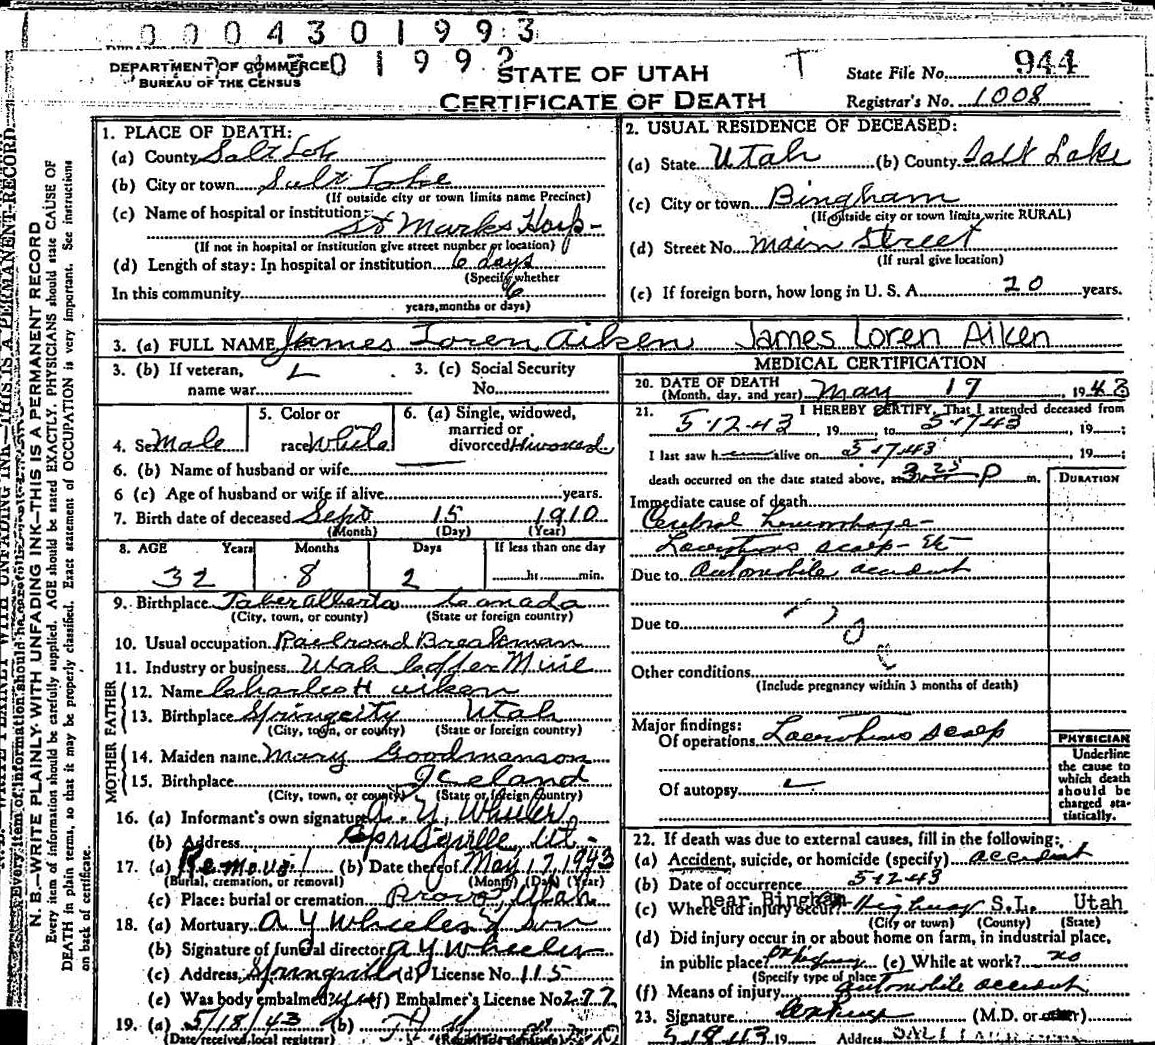 0004301993
DEPARTMENT OF COMMERCE
301992
BUREAU OF THE CENSUS
STATE OF UTAH
CERTIFICATE OF DEATH
T
State File No. 944
Registrar's No. 1008
N. B.—WRITE PLAINLY WITH UNFADING INK—THIS IS A PERMANENT RECORD
Every item of information should be carefully supplied. AGE should be stated EXACTLY. PHYSICIANS should state CAUSE OF
DEATH in plain terms, so that it may be properly classified. Exact statement of OCCUPATION is very important. See instructions
on back of certificate.
1. PLACE OF DEATH:
(a) County Salt Lake
(b) City or town Salt Lake
(If outside city or town limits name Precinct)
(c) Name of hospital or institution:
St Marks Hosp-
(If not in hospital or institution give street number or location)
(d) Length of stay: In hospital or institution 6 days
(Specify whether
In this community 6
years, months or days)
2. USUAL RESIDENCE OF DECEASED:
(a) State Utah (b) County Salt Lake
(c) City or town Bingham
(If outside city or town limits write RURAL)
(d) Street No. Main Street
(If rural give location)
(e) If foreign born, how long in U. S. A. 20 years.
3. (a) FULL NAME James Loren Aiken James Loren Aiken
3. (b) If veteran,
name war
3. (c) Social Security
No.
4. Sex Male
5. Color or
race White
6. (a) Single, widowed,
married or
divorced Divorced
6. (b) Name of husband or wife
6 (c) Age of husband or wife if alive years.
7. Birth date of deceased Sept 15 1910
(Month) (Day) (Year)
8. AGE Years Months Days If less than one day
32 8 2 hr. min.
9. Birthplace Taber Alberta Canada
(City, town, or county) (State or foreign country)
10. Usual occupation Railroad Breakman
11. Industry or business Utah Copper Mine
FATHER
12. Name Charles H Aiken
13. Birthplace Springcity Utah
(City, town, or county) (State or foreign country)
MOTHER
14. Maiden name Mary Goodmanson
15. Birthplace Iceland
(City, town, or county) (State or foreign country)
16. (a) Informant's own signature A. Y. Wheeler
(b) Address Springville Ut.
17. (a) Removal (b) Date thereof May 17, 1943
(Burial, cremation, or removal) (Month) (Day) (Year)
(c) Place: burial or cremation Provo, Utah
18. (a) Mortuary A Y Wheeler & Son
(b) Signature of funeral director A Y Wheeler
(c) Address Springville (d) License No. 115
(e) Was body embalmed? (f) Embalmer's License No. 277
19. (a) 5/18/43 (b)
(Date received local registrar)
MEDICAL CERTIFICATION
20. DATE OF DEATH
(Month, day, and year) May 17 1943
21. I HEREBY CERTIFY, That I attended deceased from
5-12-43, 19 to 5-17-43, 19 ;
I last saw h alive on 5 17 43, 19 ;
death occurred on the date stated above, at 3 25 P m.
DURATION
Immediate cause of death
Cerebral Hemorrhage-
Lacerations scalp - Etc
Due to Automobile accident
Due to
Other conditions
(Include pregnancy within 3 months of death)
Major findings:
Of operations Lacerations scalp
Of autopsy
PHYSICIAN
Underline
the cause to
which death
should be
charged sta-
tistically.
22. If death was due to external causes, fill in the following:
(a) Accident, suicide, or homicide (specify) accident
(b) Date of occurrence 5-12-43
near Bingham
(c) Where did injury occur? Highway S.L. Utah
(City or town) (County) (State)
(d) Did injury occur in or about home on farm, in industrial place,
in public place? On highway (e) While at work? no
(Specify type of place)
(f) Means of injury automobile accident
23. Signature (M.D. or other)
5 18 43 19 Address SALT LAKE